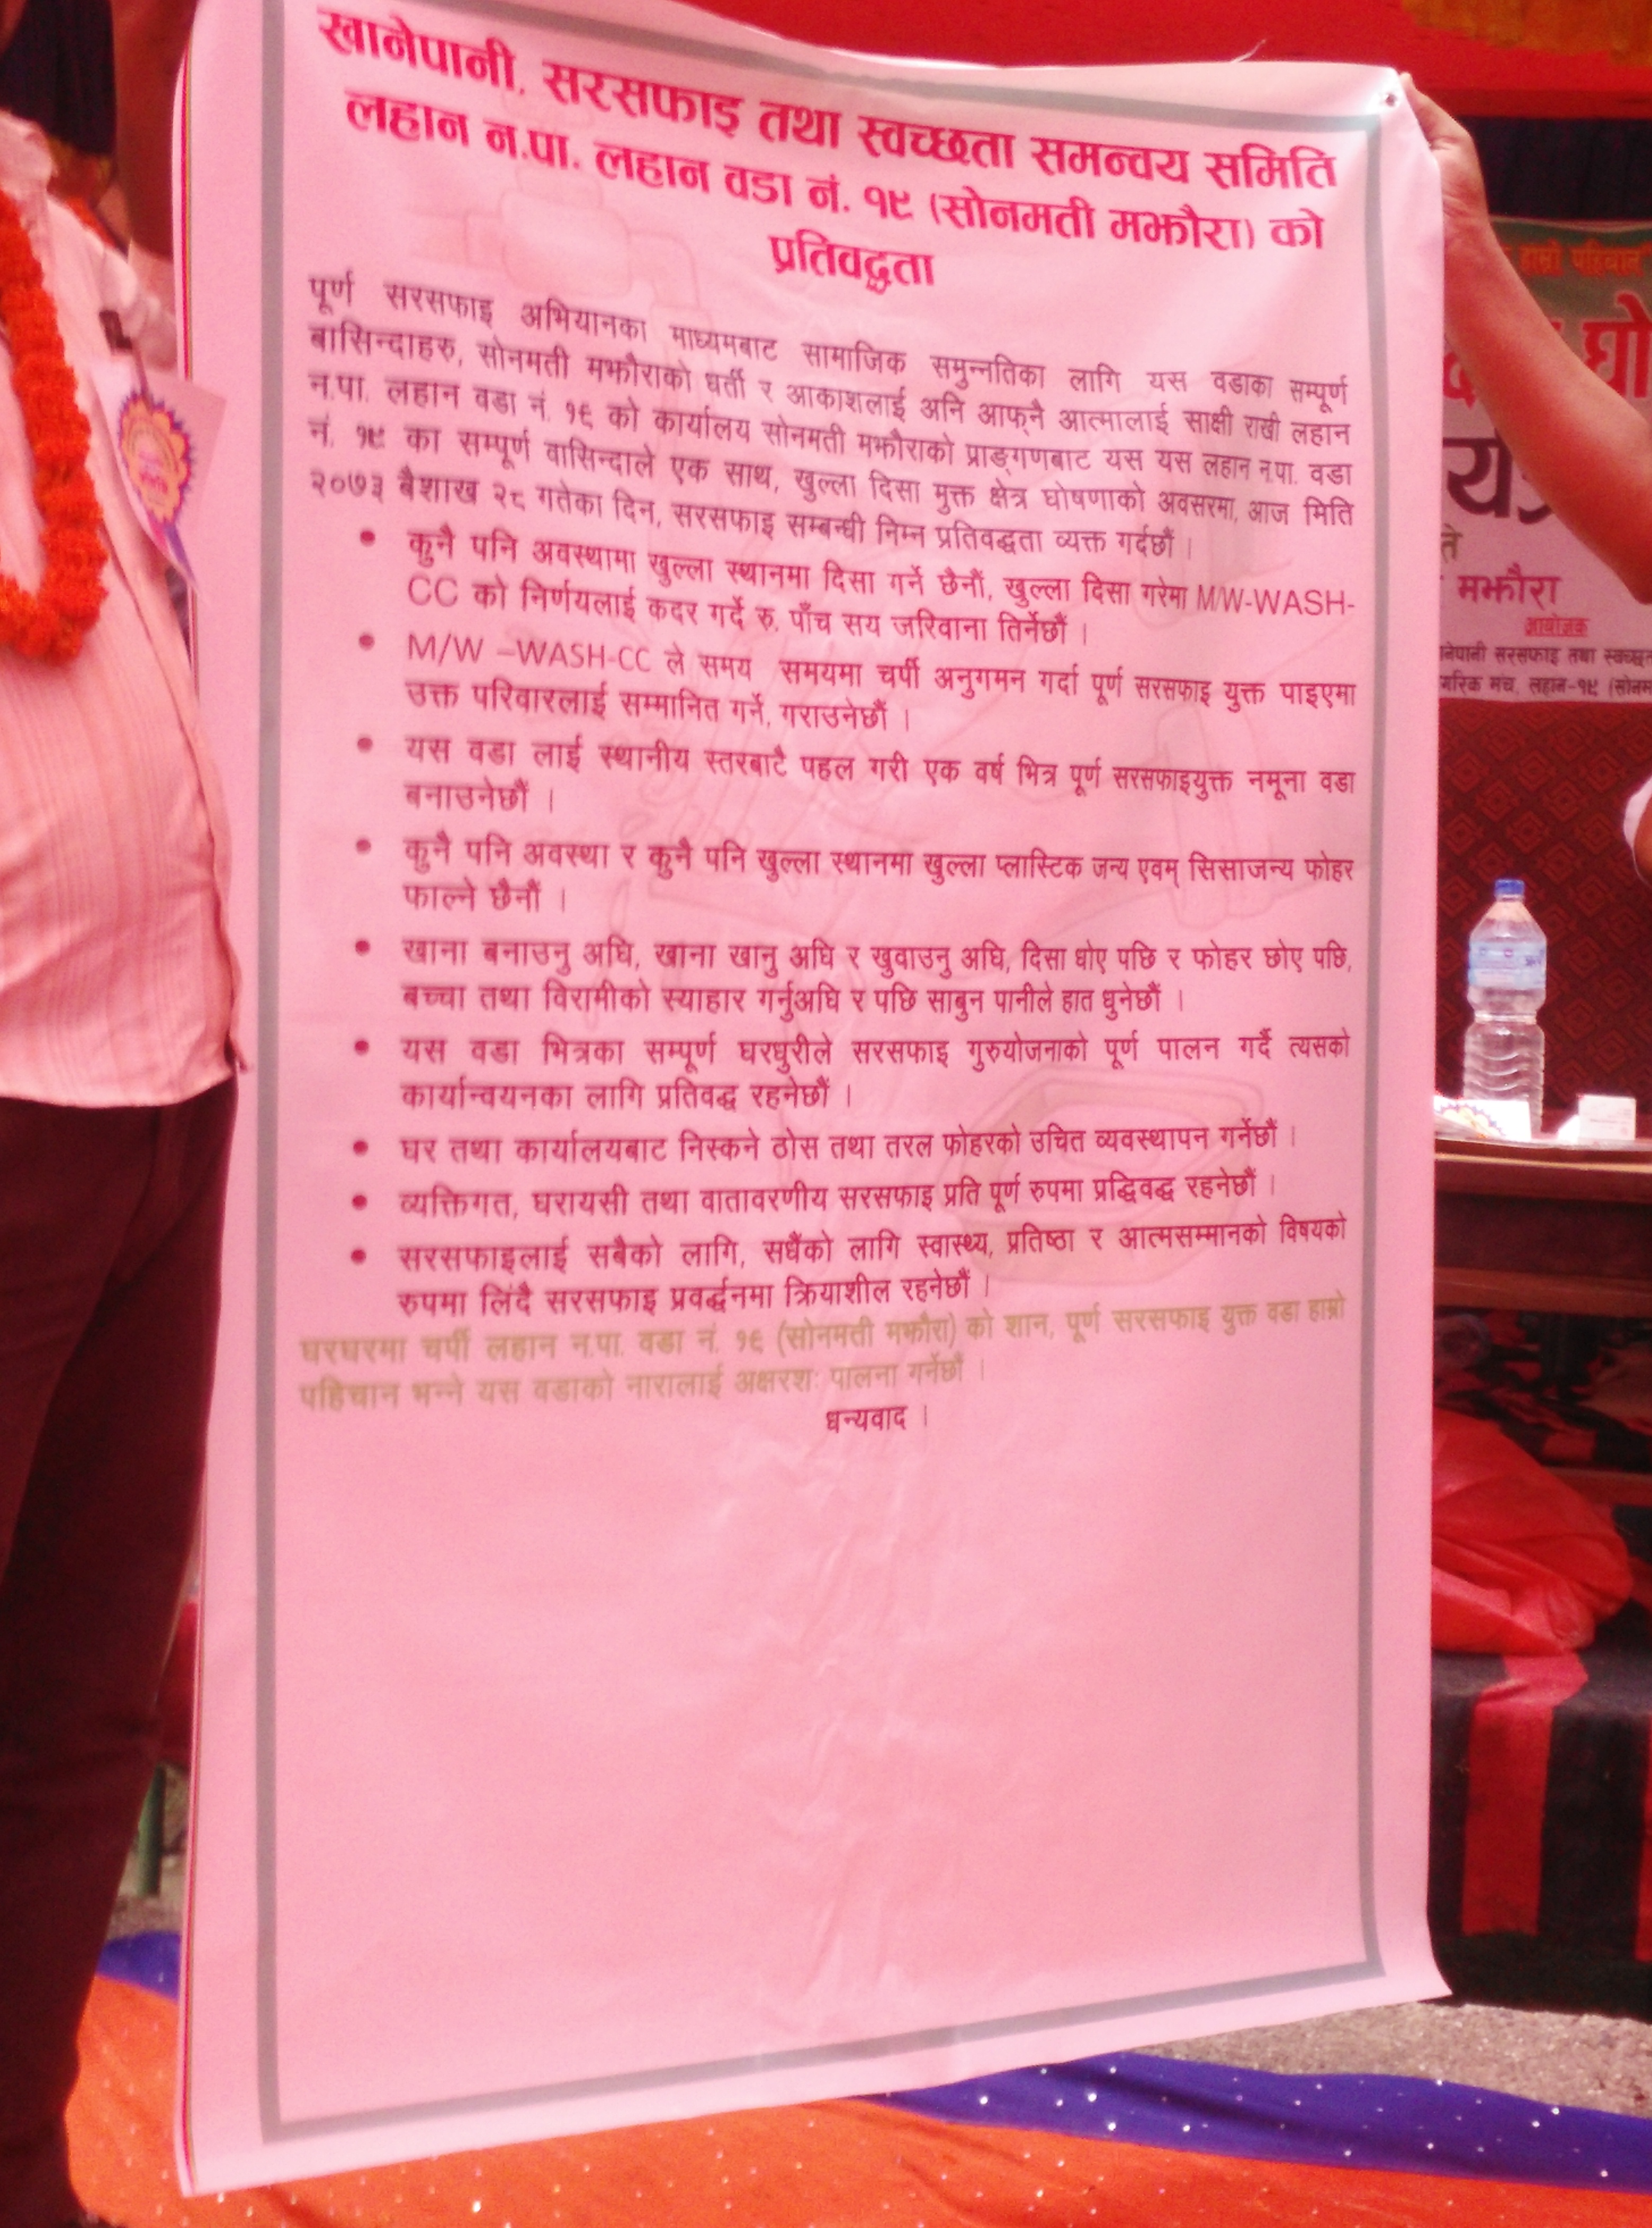 खानेपानी, सरसफाइ तथा स्वच्छता समन्वय समिति
लहान न.पा. लहान वडा नं. १९ (सोनमती मझौरा) को
प्रतिवद्धता
पूर्ण सरसफाइ अभियानका माध्यमबाट सामाजिक समुन्नतिका लागि यस वडाका सम्पूर्ण
बासिन्दाहरु, सोनमती मझौराको धर्ती र आकाशलाई अनि आफ्नै आत्मालाई साक्षी राखी लहान
न.पा. लहान वडा नं. १९ को कार्यालय सोनमती मझौराको प्राङ्गणबाट यस यस लहान न.पा. वडा
नं. १९ का सम्पूर्ण वासिन्दाले एक साथ, खुल्ला दिसा मुक्त क्षेत्र घोषणाको अवसरमा, आज मिति
२०७३ बैशाख २८ गतेका दिन, सरसफाइ सम्बन्धी निम्न प्रतिवद्धता व्यक्त गर्दछौं ।
• कुनै पनि अवस्थामा खुल्ला स्थानमा दिसा गर्ने छैनौं, खुल्ला दिसा गरेमा M/W-WASH-
CC को निर्णयलाई कदर गर्दै रु. पाँच सय जरिवाना तिर्नेछौं ।
• M/W –WASH-CC ले समय समयमा चर्पी अनुगमन गर्दा पूर्ण सरसफाइ युक्त पाइएमा
उक्त परिवारलाई सम्मानित गर्ने, गराउनेछौं ।
• यस वडा लाई स्थानीय स्तरबाटै पहल गरी एक वर्ष भित्र पूर्ण सरसफाइयुक्त नमूना वडा
बनाउनेछौं ।
• कुनै पनि अवस्था र कुनै पनि खुल्ला स्थानमा खुल्ला प्लास्टिक जन्य एवम् सिसाजन्य फोहर
फाल्ने छैनौं ।
• खाना बनाउनु अघि, खाना खानु अघि र खुवाउनु अघि, दिसा धोए पछि र फोहर छोए पछि,
बच्चा तथा विरामीको स्याहार गर्नुअघि र पछि साबुन पानीले हात धुनेछौं ।
• यस वडा भित्रका सम्पूर्ण घरधुरीले सरसफाइ गुरुयोजनाको पूर्ण पालन गर्दै त्यसको
कार्यान्वयनका लागि प्रतिवद्ध रहनेछौं ।
• घर तथा कार्यालयबाट निस्कने ठोस तथा तरल फोहरको उचित व्यवस्थापन गर्नेछौं ।
• व्यक्तिगत, घरायसी तथा वातावरणीय सरसफाइ प्रति पूर्ण रुपमा प्रद्धिवद्ध रहनेछौं ।
• सरसफाइलाई सबैको लागि, सधैंको लागि स्वास्थ्य, प्रतिष्ठा र आत्मसम्मानको विषयको
रुपमा लिंदै सरसफाइ प्रवर्द्धनमा क्रियाशील रहनेछौं ।
घरघरमा चर्पी लहान न.पा. वडा नं. १९ (सोनमती मझौरा) को शान, पूर्ण सरसफाइ युक्त वडा हाम्रो
पहिचान भन्ने यस वडाको नारालाई अक्षरशः पालना गर्नेछौं ।
धन्यवाद ।
हाम्रो पहिचान
घो
मझौरा
आयोजक
सरसफाइ तथा
मंच, लहान-१९